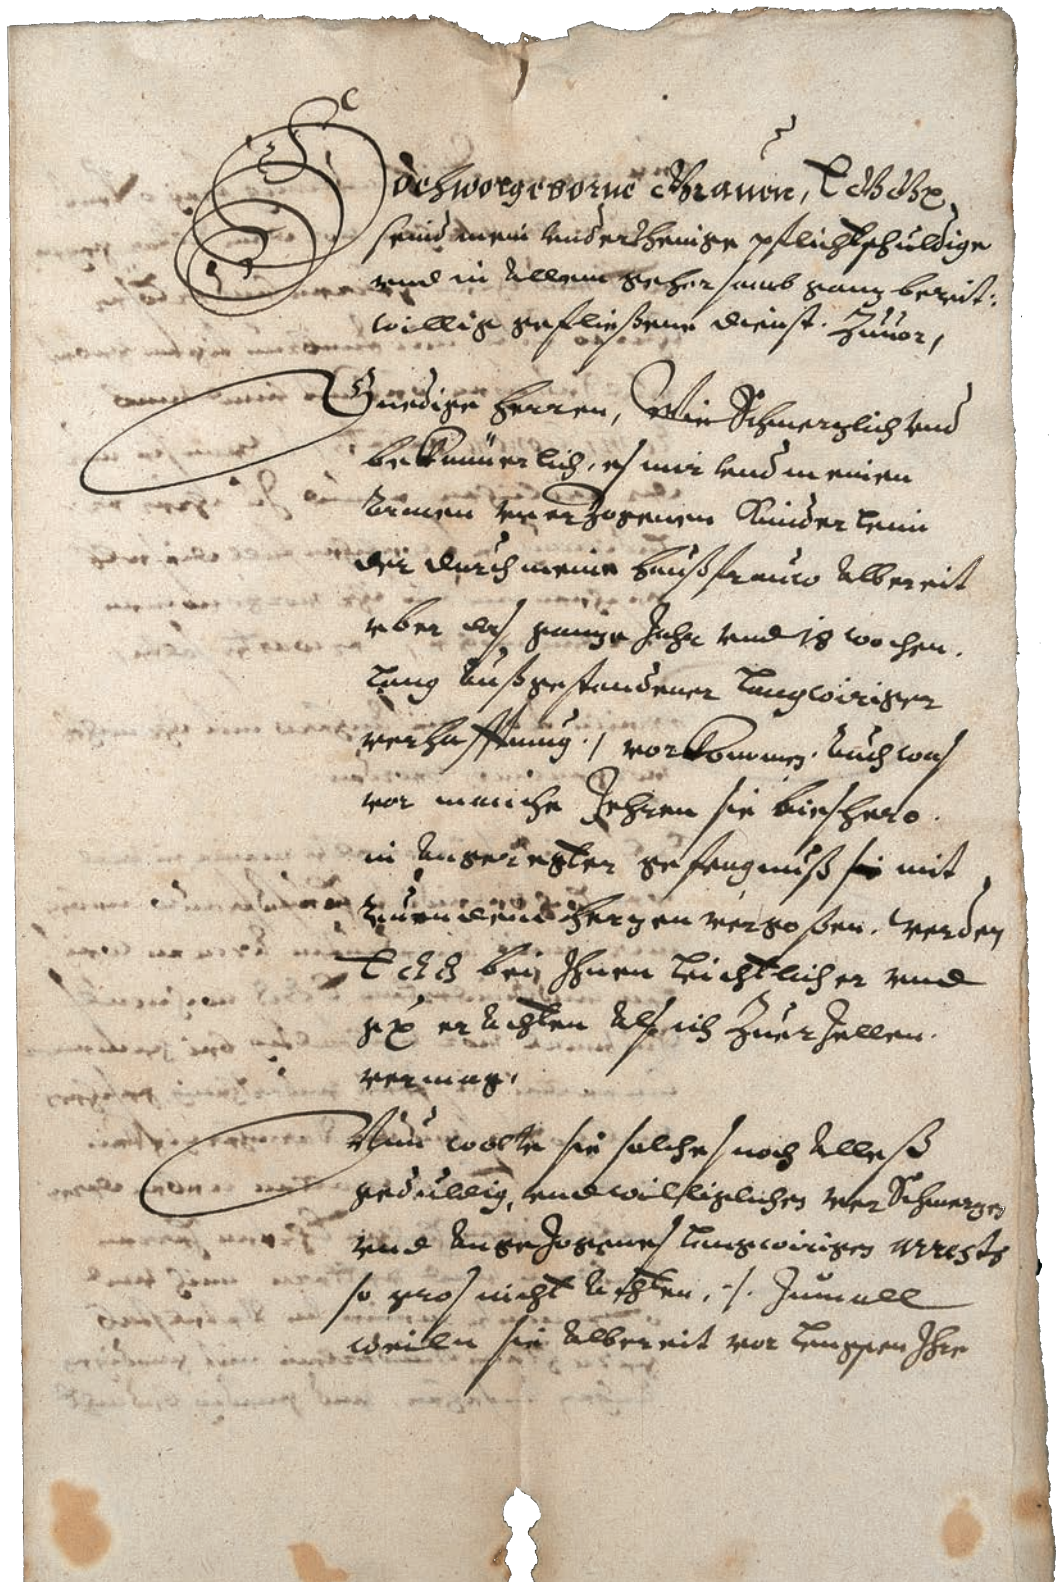 Edelwolgeborne Grauen, E G G
seind mein underthenige pflichtschuldige
vnd in Allem gehorsamb ganz bereit:
willig gefließene dienst. Zuuor,
Gnedige Herren, Wie Schmerzlich vnd
bekümmerlich, es mir vnd meinen
Armen vnerzogenen Kinderlein
die durch meine haußfrauw Albereit
vber das ganze Jahr vnd 18 wochen.
lang Außgestandener langwiriger
verhafftung./ vorkommen. Auch was
vor manche Zehren sie bieshero.
in Angeregter gefengnuß mit
hertzen vergoßen. werden
E G G bei Ihnen leichtlicher vnd
erAchten Als ich Zuerzellen.
vermag.
Nun wolte sie solches noch Alleß
gedultig, vnd williglichen verSchmerzen
vnd Angezogenes langwirigen Arrests
so gros nicht Achten. Zumall
weiln sie Albereit vor langgen Ihre